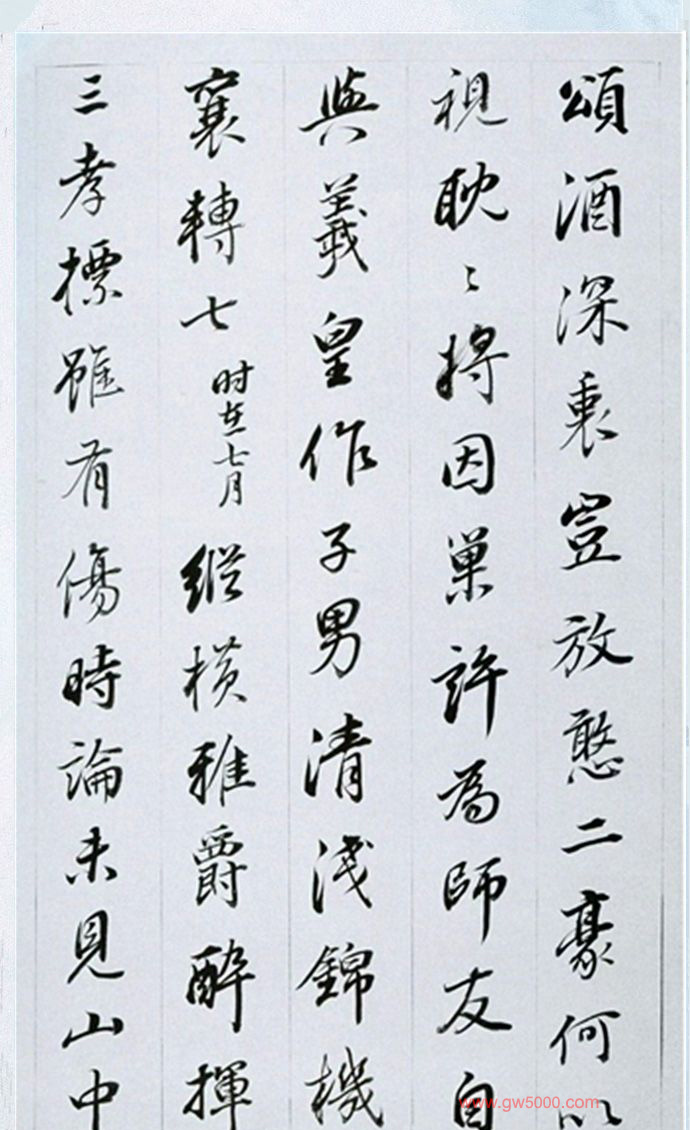 頌酒深衷豈放憨二豪何以
視耽〻將因巢許為師友自
與羲皇作子男清淺錦機
襄轉七时在七月縱橫雅爵醉揮
三孝標雖有傷時論未見山中
www.gw5000.com